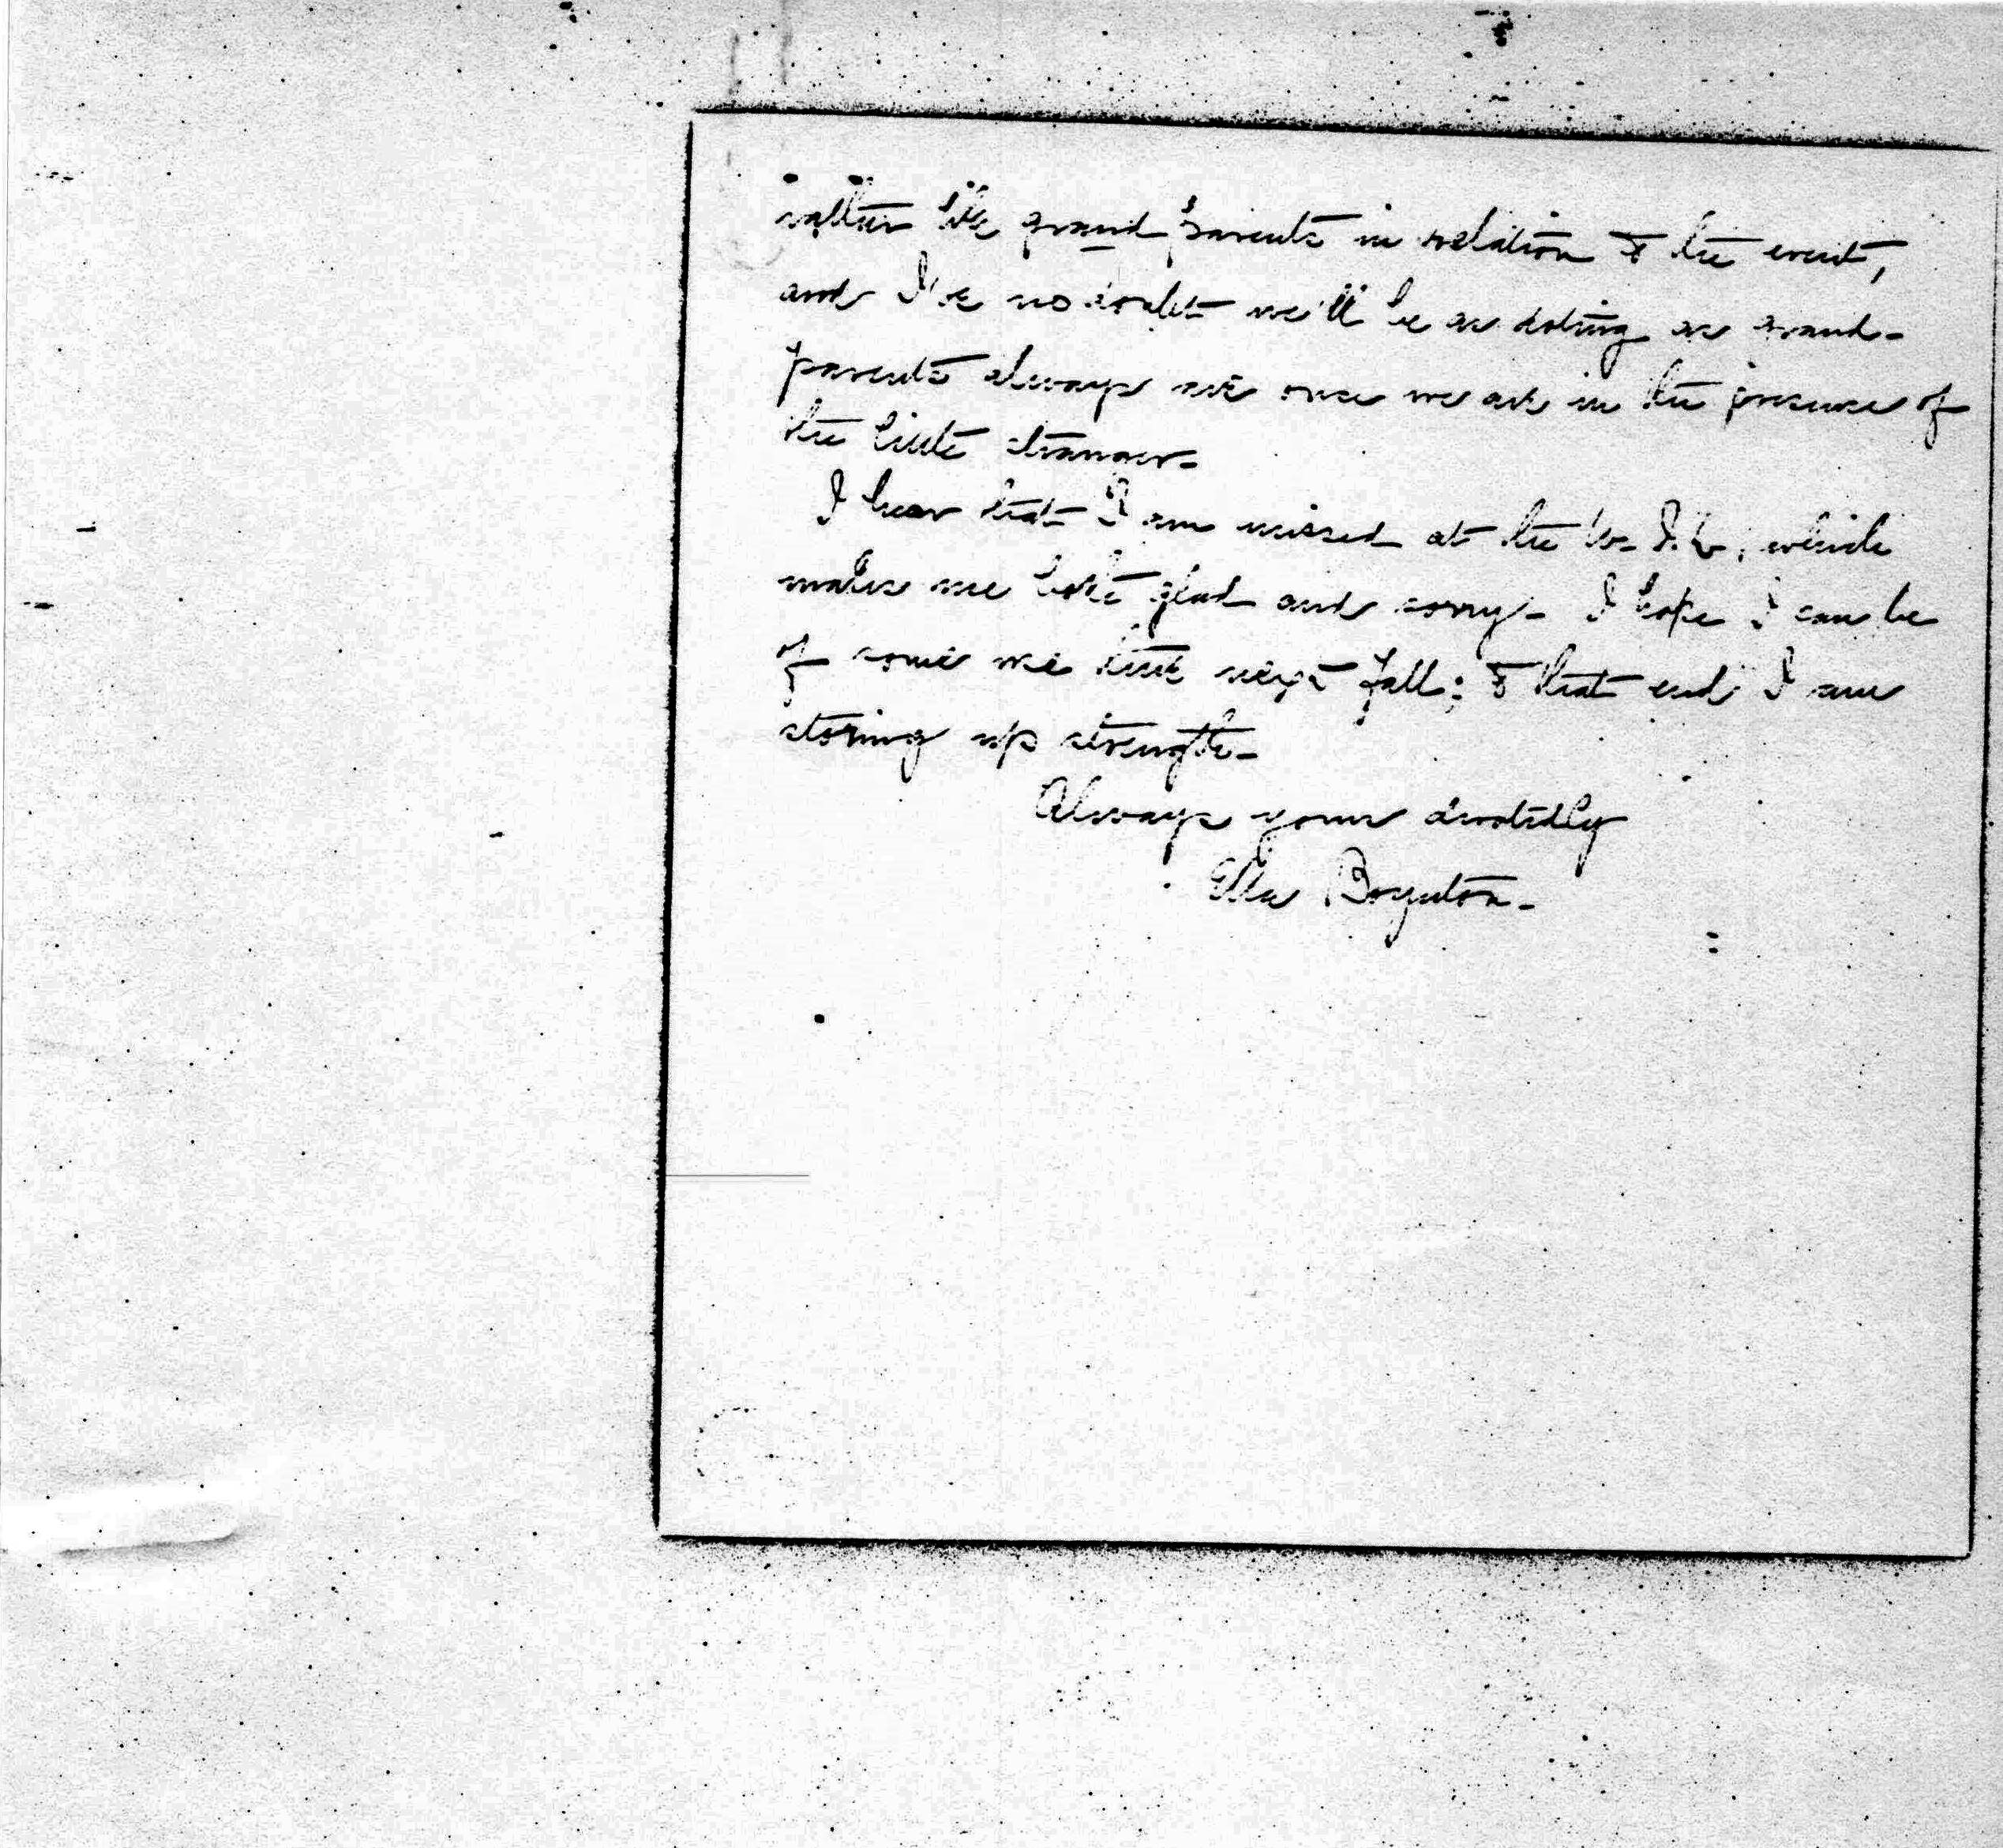 rather like grand parents in relation to the event,
and I've no doubt we'll be as doting as grand-
parents always are once we are in the presence of
the little stranger-
I hear that I am missed at the which
makes me both glad and sorry- I hope I can be
of some use there next fall; to that end I am
storing up strength-
Always yours devotedly
Ella Boynton-